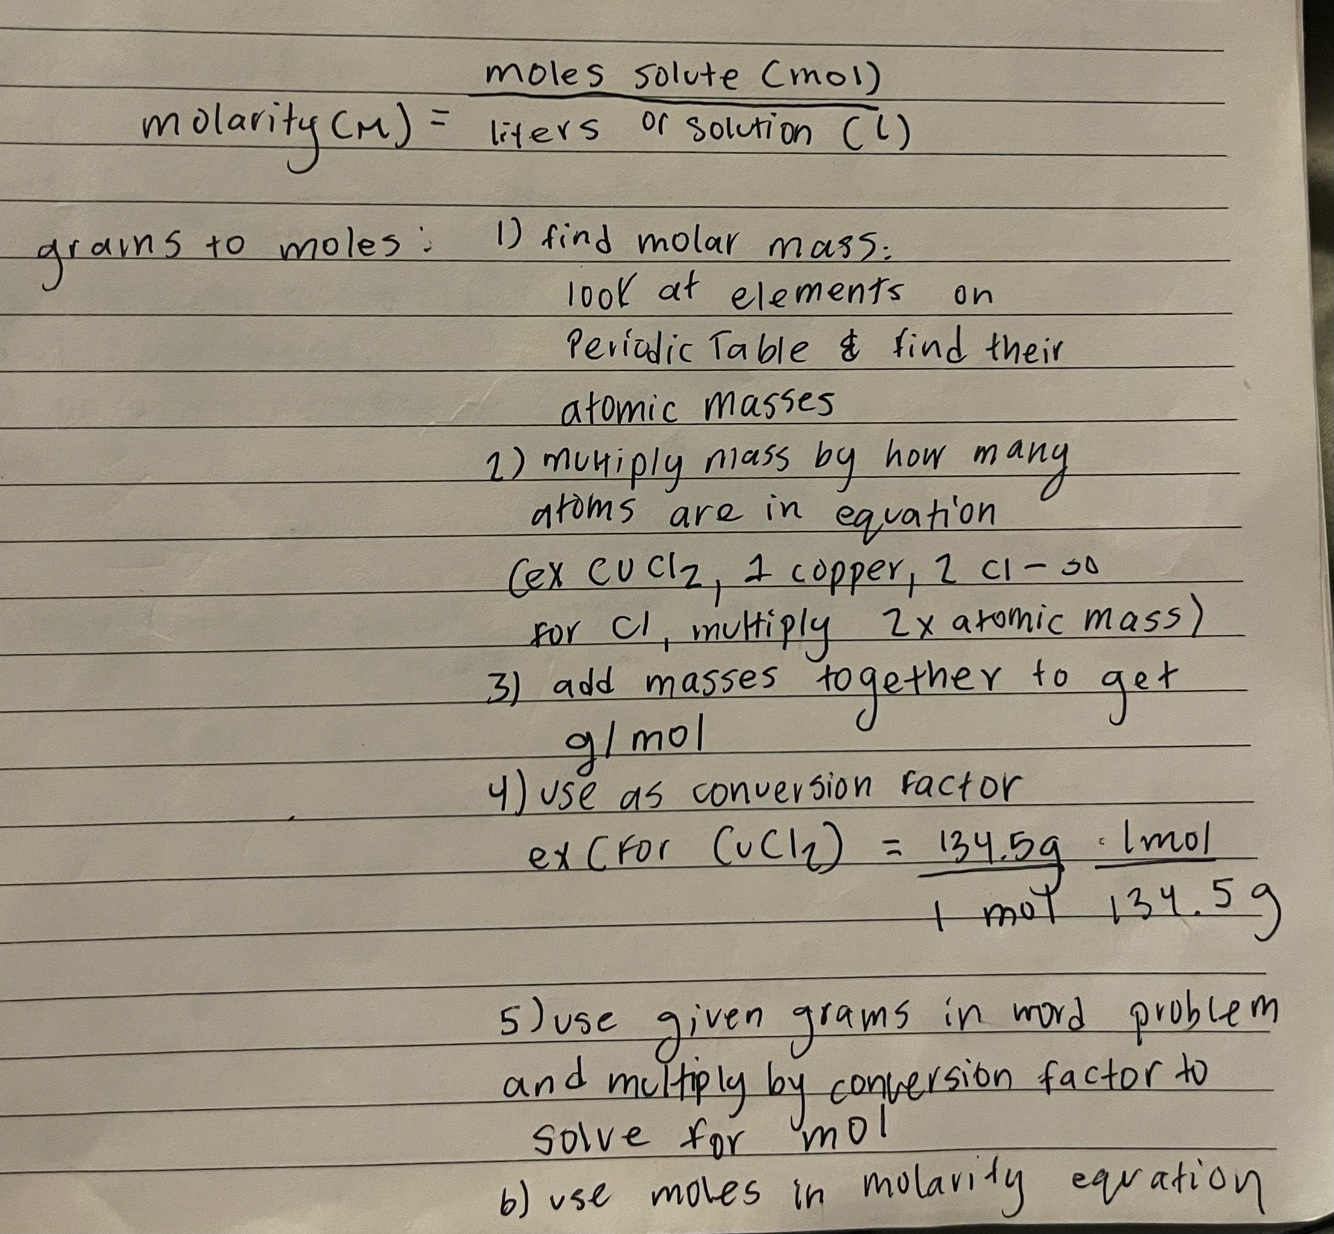 moles solute (mol)
molarity (M) = liters of solution (L)
grams to moles: 1) find molar mass:
look at elements on
Periodic Table & find their
atomic masses
2) multiply mass by how many
atoms are in equation
(ex CuCl2, 1 copper, 2 Cl - so
for Cl, multiply 2x atomic mass)
3) add masses together to get
g/mol
4) use as conversion factor
ex (for CuCl2) = 134.5g · 1mol
1 mol 134.5g
5) use given grams in word problem
and multiply by conversion factor to
solve for mol
6) use moles in molarity equation